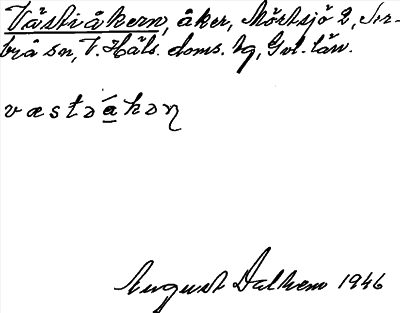 Västiåkern, åker, Mörtsjö 2, Jär-
brå sn, V. Häls. doms. hg, Gvl. län.
væstɔákɔn̡
August Dalhem 1946